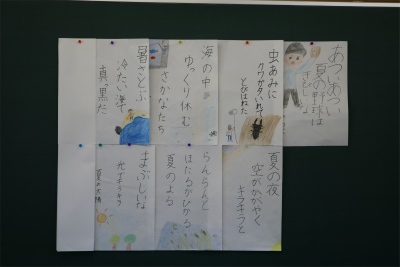 あつい
夏の野球は
虫あみに
クワガタいれて
とびはねた
海の中
ゆっくり休む
さかなたち
暑さとぶ
冷たい海で
真っ黒だ
夏の夜
空がかがやく
キラキラと
らんらんと
ほたるがひかる
夏のよる
まぶしいな
光ずキラキラ
夏の太陽